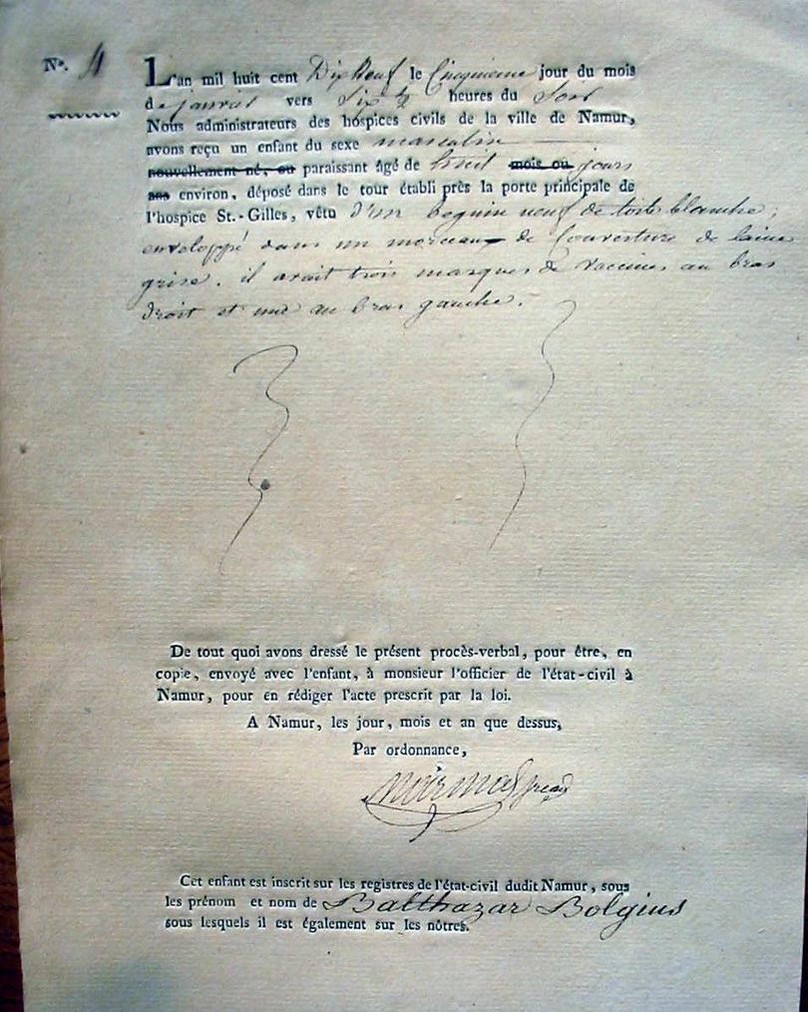 N°. 4
L'an mil huit cent Dix Neuf le Cinquieme jour du mois
de janvier vers Six ½ heures du Soir
Nous administrateurs des hospices civils de la ville de Namur,
avons reçu un enfant du sexe masculin
nouvellement né, ou paraissant âgé de huit mois ou jours
ans environ, déposé dans le tour établi près la porte principale de
l'hospice St.-Gilles, vêtu d'un beguin neuf de toile blanche;
enveloppé dans un morceau de Couverture de laine
grise. il avait trois marques de vaccines au bras
droit et une au bras gauche.
De tout quoi avons dressé le présent procès-verbal, pour être, en
copie, envoyé avec l'enfant, à monsieur l'officier de l'état-civil à
Namur, pour en rédiger l'acte prescrit par la loi.
A Namur, les jour, mois et an que dessus,
Par ordonnance,
Cet enfant est inscrit sur les registres de l'état-civil dudit Namur, sous
les prénom et nom de Balthazar Bolgius
sous lesquels il est également sur les nôtres.